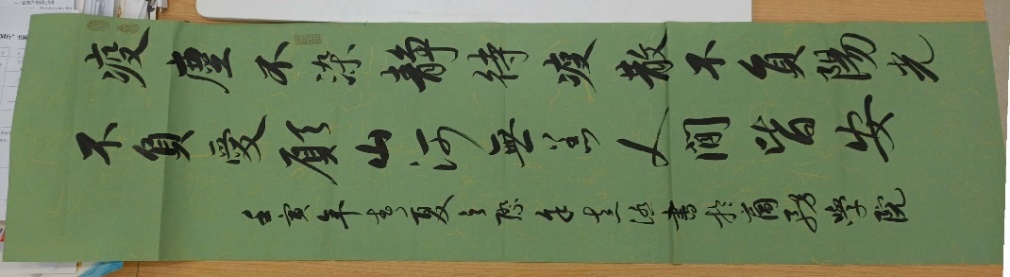 疫塵不染靜待疫散不負陽光
不負愛願山河無恙人間皆安
壬寅年夏之際書於商務學院